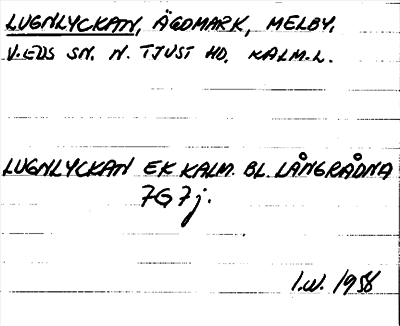 LUGNLYCKAN, ÄGOMARK, MELBY,
V. EDS SN. N. TJUST HD, KALM.L.
LUGNLYCKAN EK KALM. BL. LÅNGRÅDNA
7G 7j.
I.W. 1958